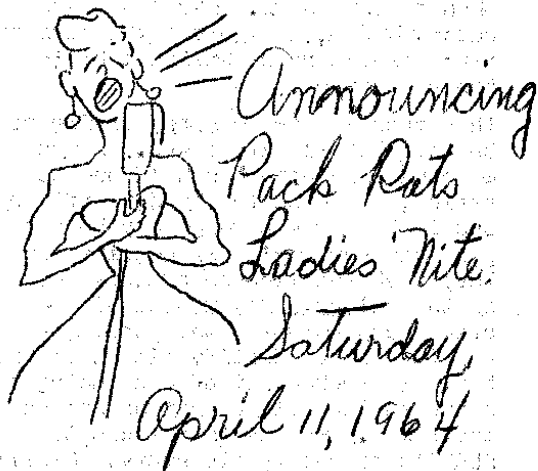 Announcing
Pack Rats
Ladies' Nite.
Saturday,
April 11, 1964